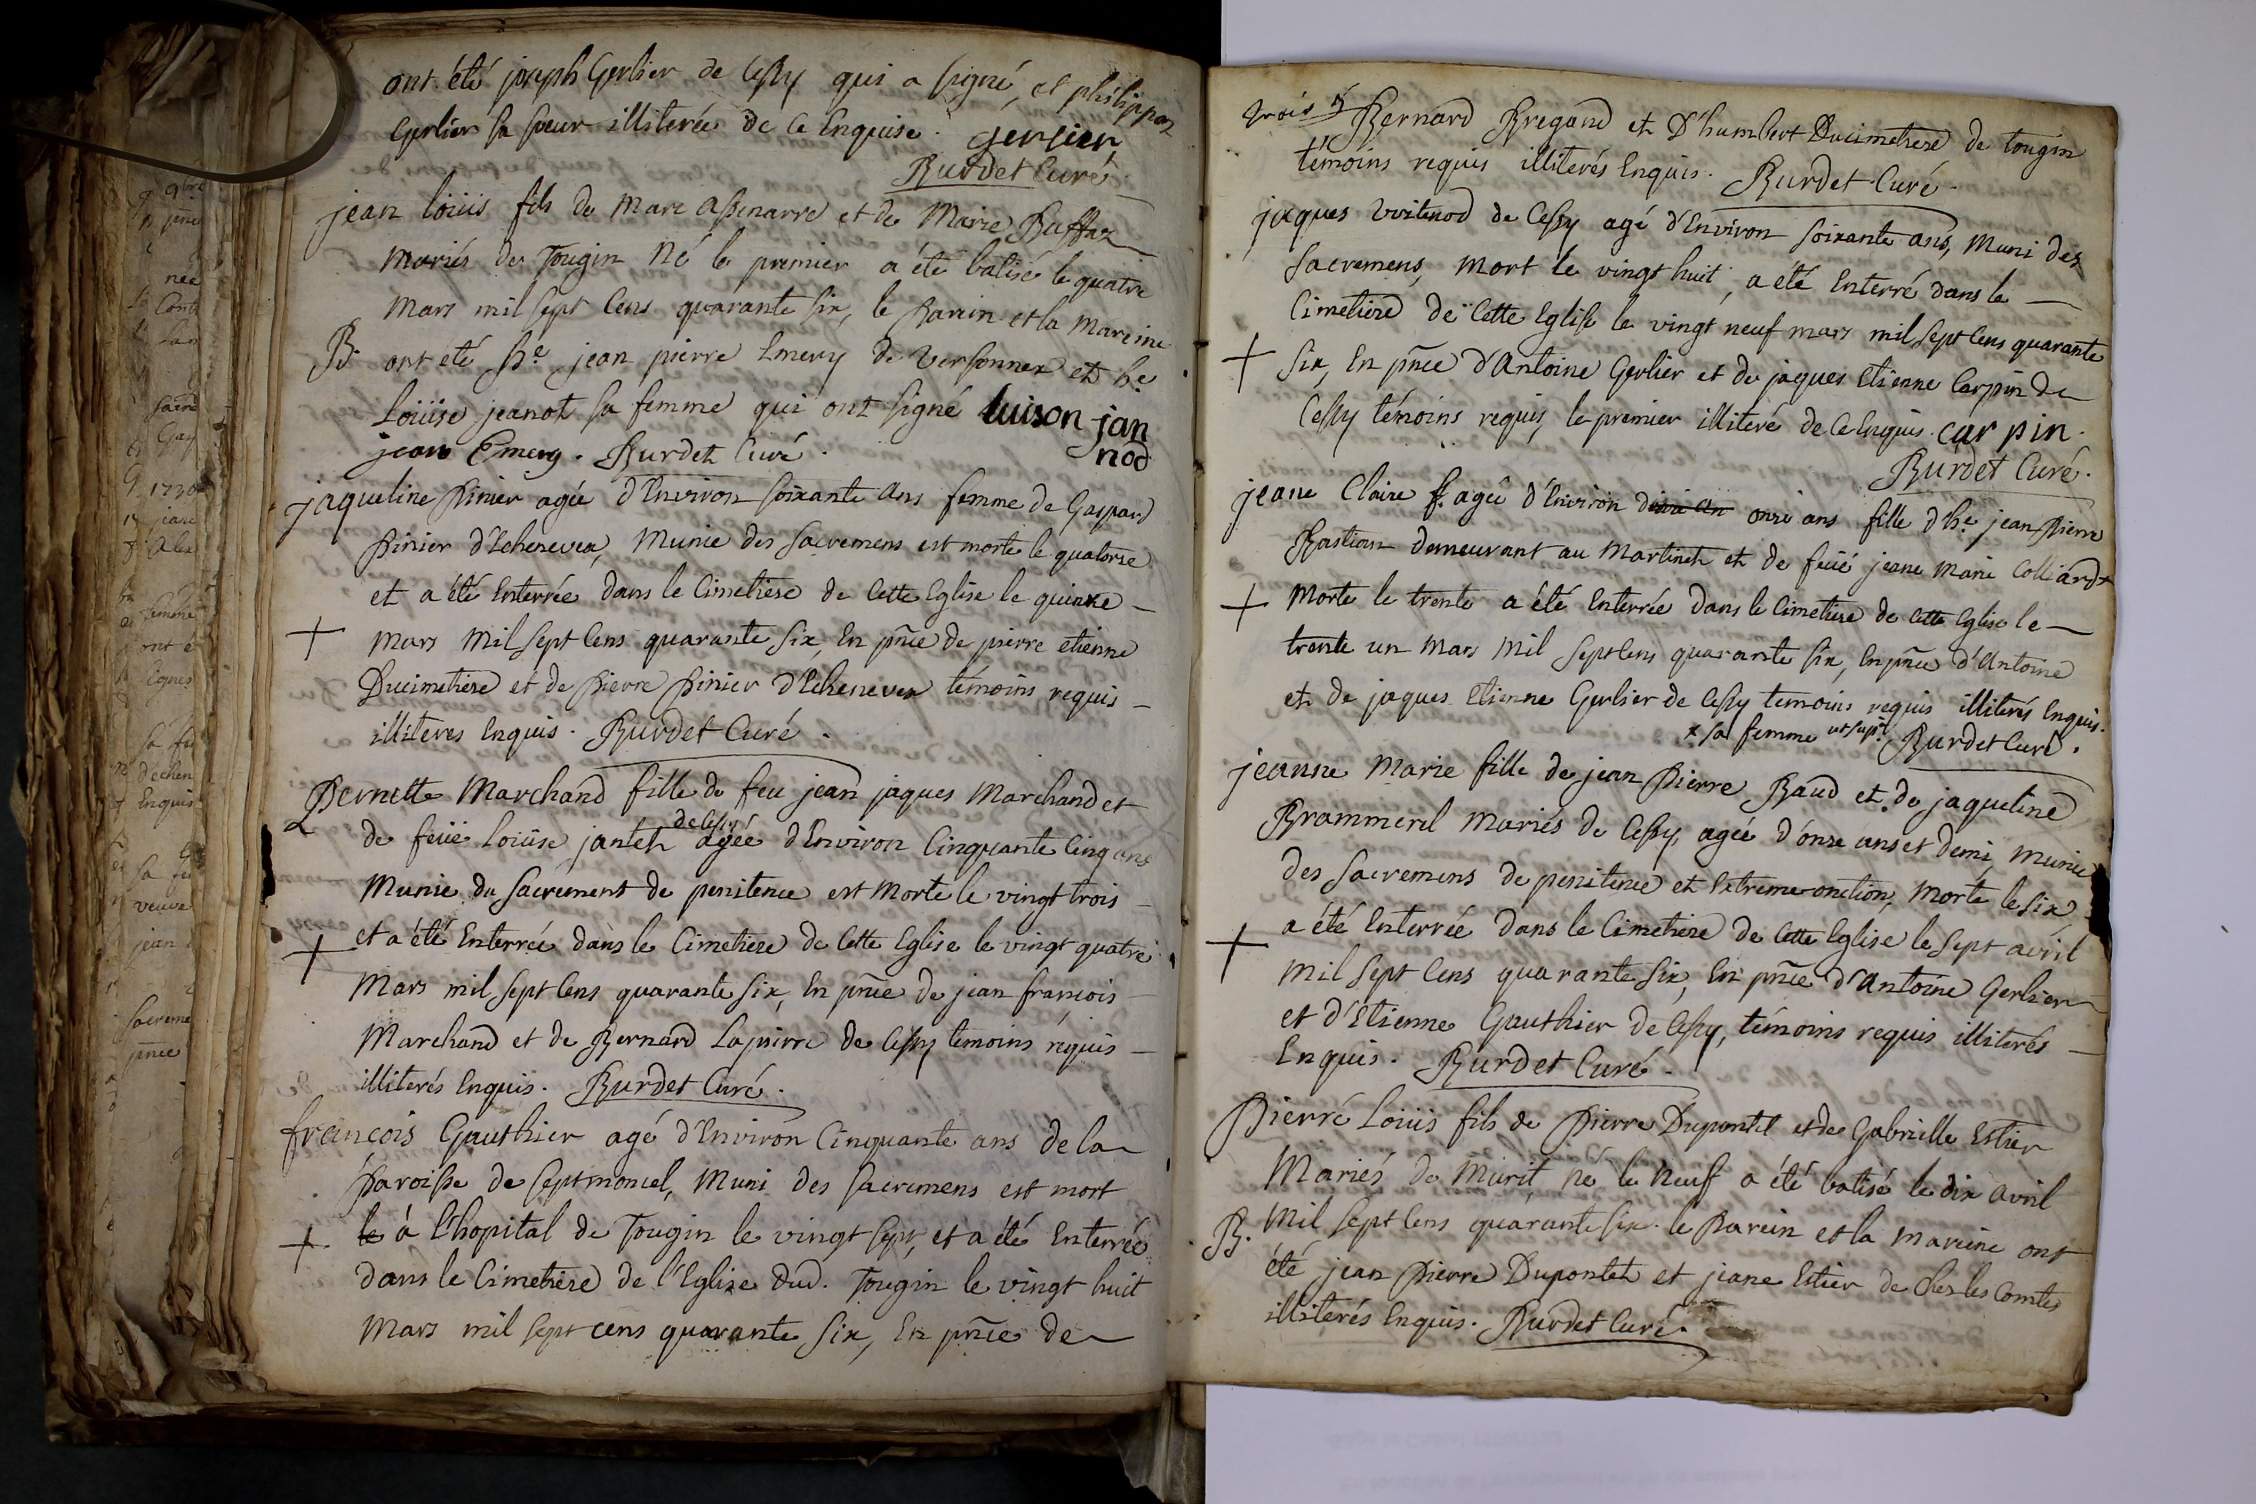 ont été joseph Gerlier de Cessy qui a signé, et philippaz
Gerlier sa soeur illiterée de ce Enquise. gerlier
Burdet Curé.
jean loüis fils de Marc assinarre et de Marie Buffaz
Mariés de Tougin né le premier a été batisé le quatre
Mars mil sept Cens quarante six, le Parain et la Mareine
B. ont eté he. jean pierre Emery de Versonnex et he.
Loüise jeanot sa femme qui ont signé luison jan
nod
jean Emery. Burdet Curé.
jaqueline Pinier agée d'Environ soixante ans femme de Gaspard
Pinier d'Echenevex, Munie des sacremens est morte le quatorse
et a été Enterrée dans le Cimetiere de Cette Eglise le quinze
+ Mars mil sept Cens quarante six, En pñce de pierre etienne
Ducimetiere et de Pierre Pinier d'Echenevex témoins requis
illiteres Enquis. Burdet Curé.
Pernette Marchand fille de feu jean jaques Marchand et
de Cessy
de feüe Loüise janteh agée d'Environ Cinquante Cinq ans
Munie du sacrement de penitence est Morte le vingt trois
et a été Enterrée dans le Cimetiere de Cette Eglise le vingt quatre
+ Mars mil sept Cens quarante six, En pñce de jean françois
Marchand et de Bernard Lapierre de Cessy temoins requis
illiterés Enquis. Burdet Curé.
françois Gauthier agé d'Environ Cinquante ans de la
Paroisse de septmoncel, Muni des sacremens est mort
+ le à l'hopital de Tougin le vingt sept, et a été Enterré
dans le Cimetiere de l'Eglise dud. Tougin le vingt huit
Mars mil sept cens quarante six, En pñce de
Bernard Bregand et d'humbert Ducimetiere de tougin
témoins requis illiterés Enquis. Burdet Curé.
jaques Vuitenod de Cessy agé d'Environ soixante ans, Muni des
sacremens, mort le vingt huit, a été Enterré dans le
Cimetiere de Cette Eglise le vingt neuf mars mil sept Cens quarante
+ six, En pñce d'Antoine Gerlier et de jaques Etienne Carpin de
Cessy témoins requis, le premier illiteré de Ce Enquis. car pin.
Burdet Curé.
jeane Claire agée d'Environ onze ans fille d'he. jean Pierre
Bastian demeurant au Martinet et de feüe jeane Marie Colliard
+ Morte le trente a été Enterrée dans le Cimetiere de Cette Eglise le
trente un Mars mil sept Cens quarante six, En pñce d'Antoine
et de jaques Etienne Gerlier de Cessy temoins requis illiterés Enquis.
x sa femme Burdet Curé.
jeanne Marie fille de jean Pierre Baud et de jaqueline
Brammerel Mariés de Cessy, agée d'onze ans et demi, Munie
des sacremens de penitence et Extreme onction, Morte le six
+ a été Enterrée dans le Cimetiere de Cette Eglise le sept avril
Mil sept Cens quarante six, En pñce d'Antoine Gerlier
et d'Etienne Gauthier de Cessy, témoins requis illiterés
Enquis. Burdet Curé.
Pierre Loüis fils de Pierre Dupontet et de Gabrielle Estier
Mariés de Murit né le neuf a été batisé le dix avril
B. Mil sept Cens quarante six. le Parein et la Mareine ont
été jean Pierre Dupontet et jeane Estier de Ches les Comtes
illiterés Enquis. Burdet Curé.